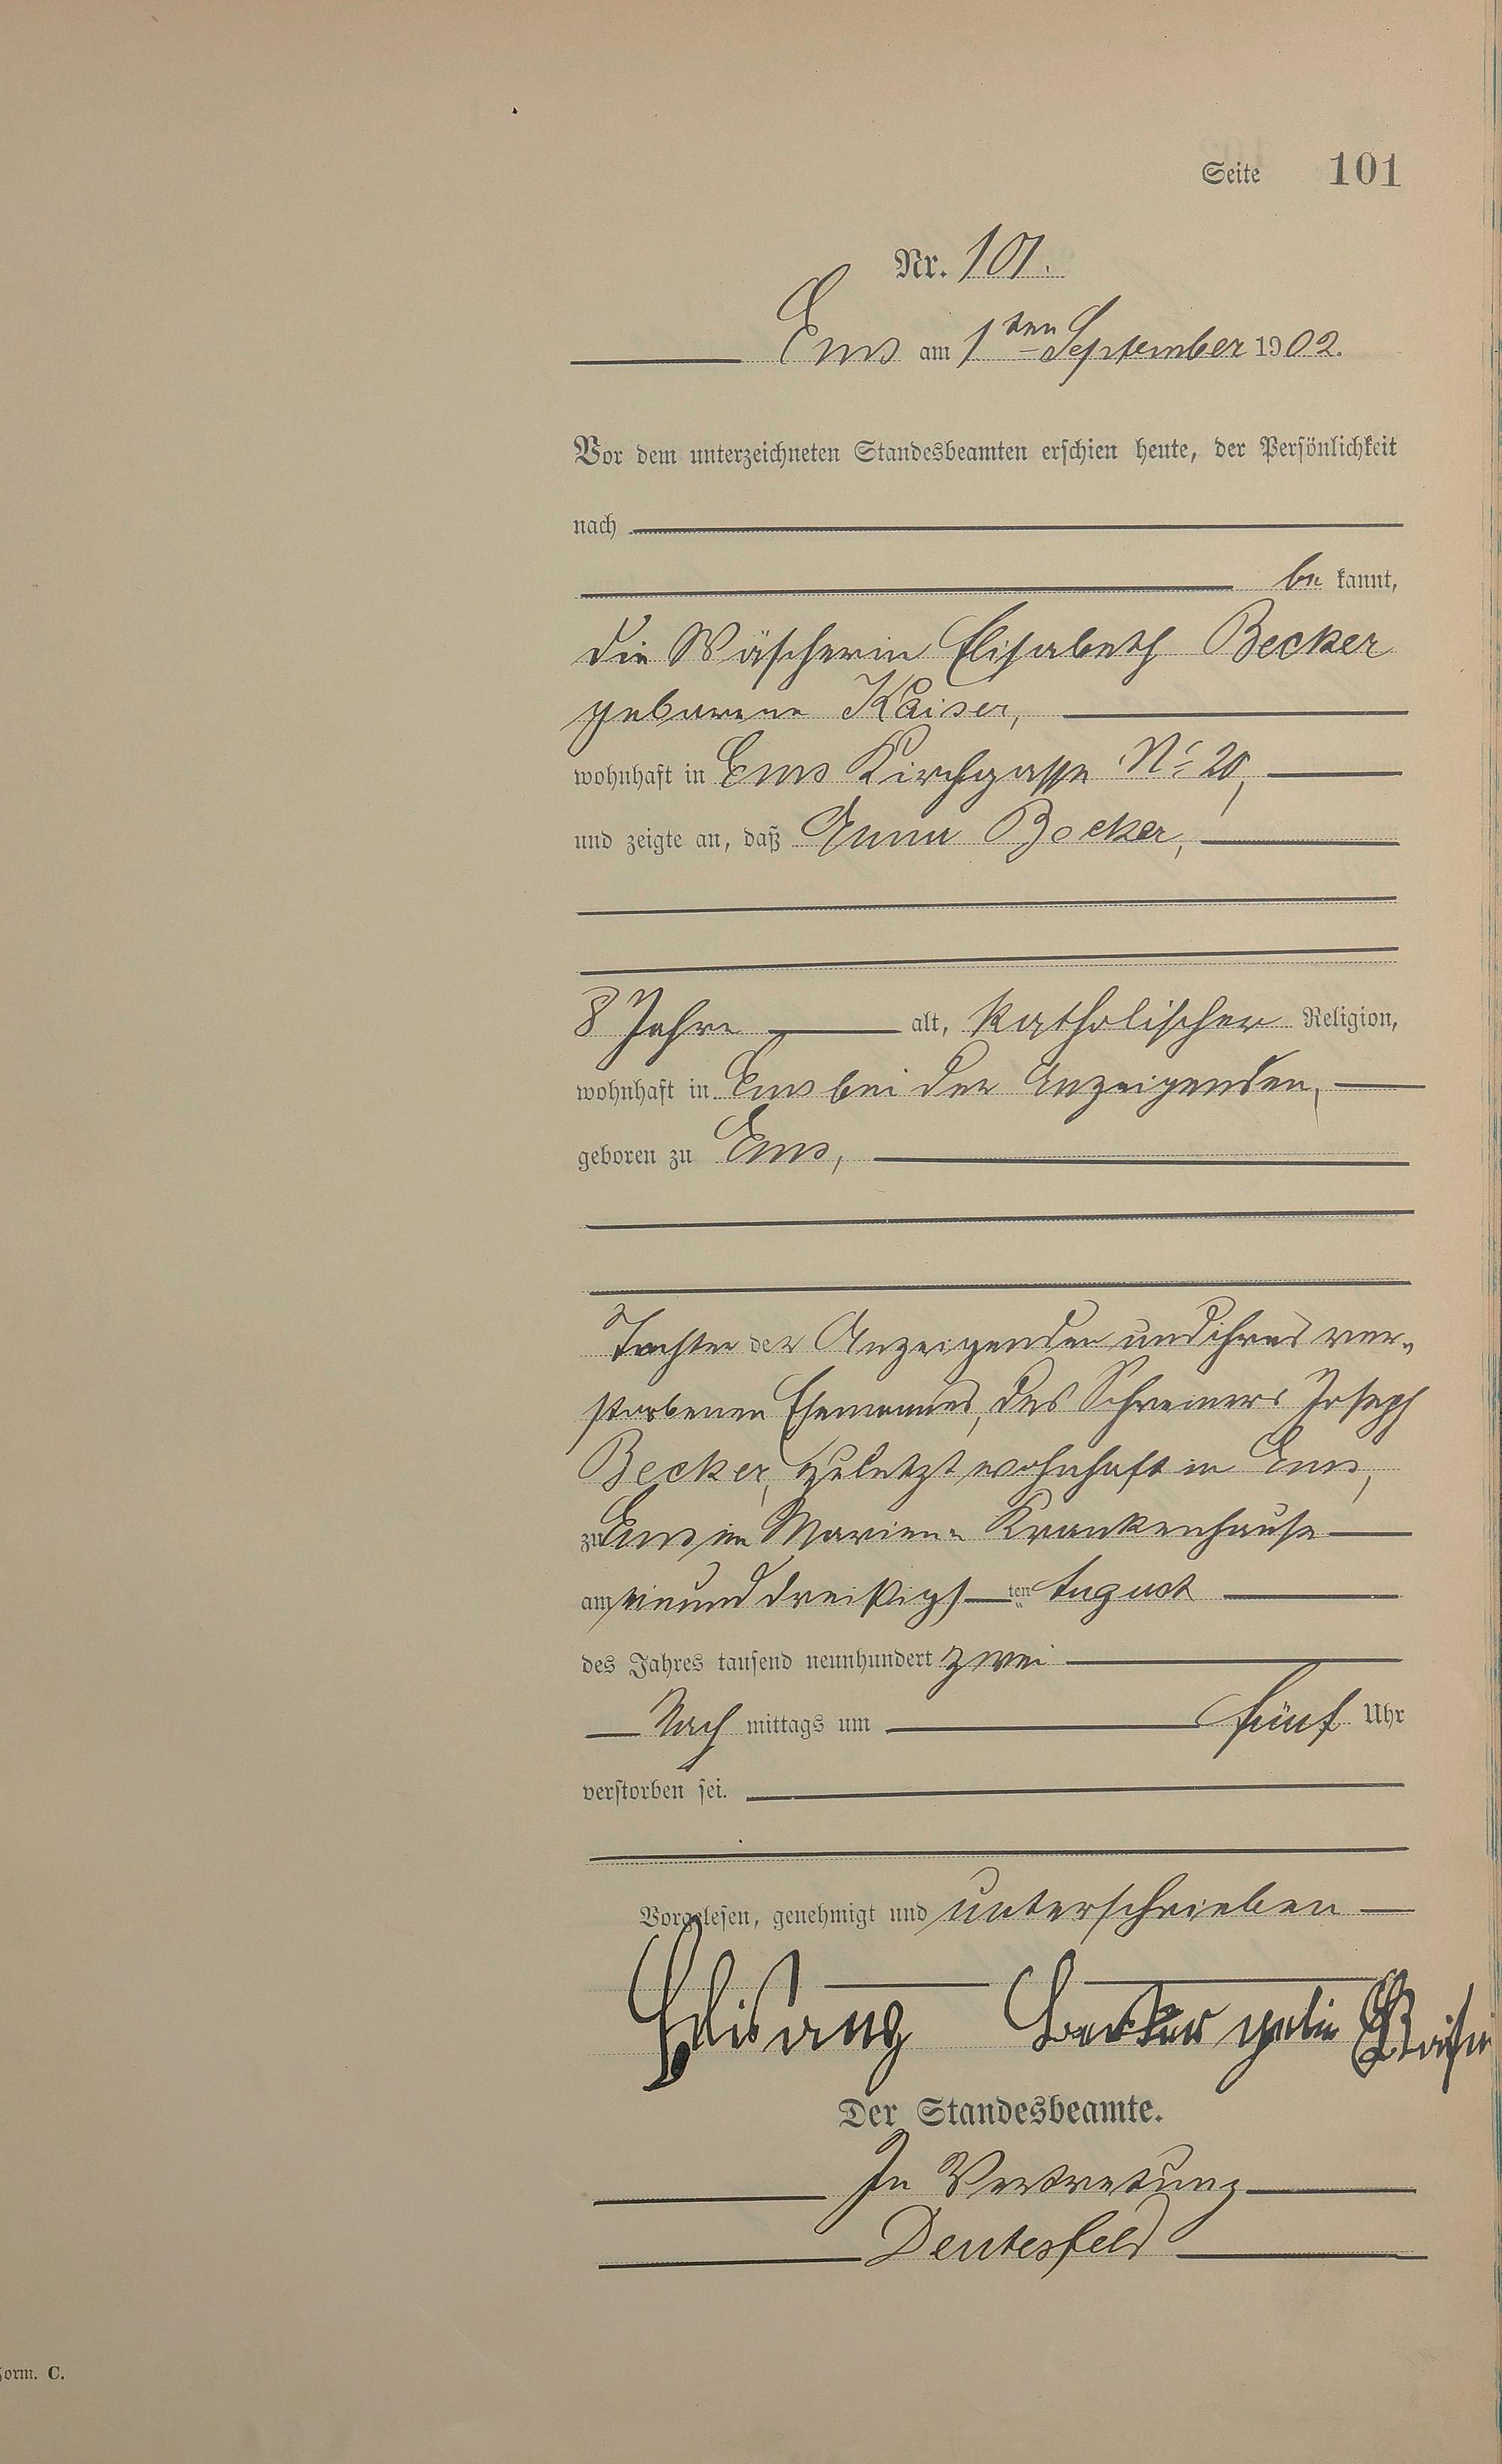 Seite 101
Nr. 101.
Ems am 1ten September 1902.
Vor dem unterzeichneten Standesbeamten erschien heute, der Persönlichkeit
nach
be kannt,
die Wäscherin Elisabeth Becker
geborene Kaiser,
wohnhaft in Ems Kirchgasse No 20,
und zeigte an, daß Anna Becker,
8 Jahre alt, katholischer Religion,
wohnhaft in Ems bei der Anzeigenden,
geboren zu Ems,
Tochter der Anzeigenden und ihres ver-
storbenen Ehemannes, des Schreiners Joseph
Becker, zuletzt wohnhaft in Ems,
zu Ems im Marien-Krankenhause
am einunddreißigsten August
des Jahres tausend neunhundert zwei
Nach mittags um fünf Uhr
verstorben sei.
Vorgelesen, genehmigt und unterschrieben
Becker
Der Standesbeamte.
In Vertretung
Deutesfeld
Form. C.